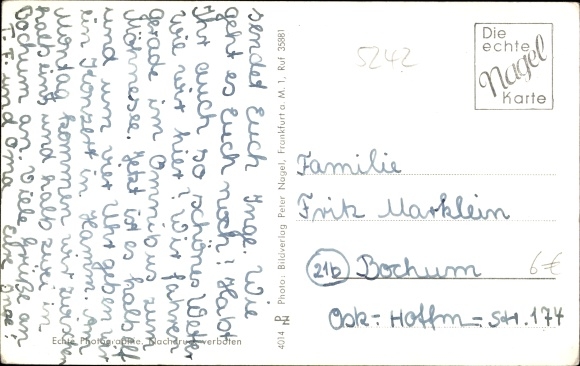 sendet Euch Inge. Wie
geht es Euch noch? Habt
Ihr auch so schönes Wetter
wie wir hier? Wir fahren
gerade im Omnibus zum
Möhnesee. Jetzt ist es halb elf
und um vier Uhr gehen wir
in Konzert in Hamm. Am
Montag kommen wir zwischen
halb eins und halb zwei in
Bochum an. Viele Grüße an
T. F. und Oma Eure Inge!
Echte Photographie. Nachdruck verboten
4014
Photo: Bildverlag Peter Nagel, Frankfurt a. M. 1, Ruf 35881
5242
Die
echte
Nagel
Karte
Familie
Fritz Marklein
21b Bochum
6 €
Osk.-Hoffm.-Str. 174